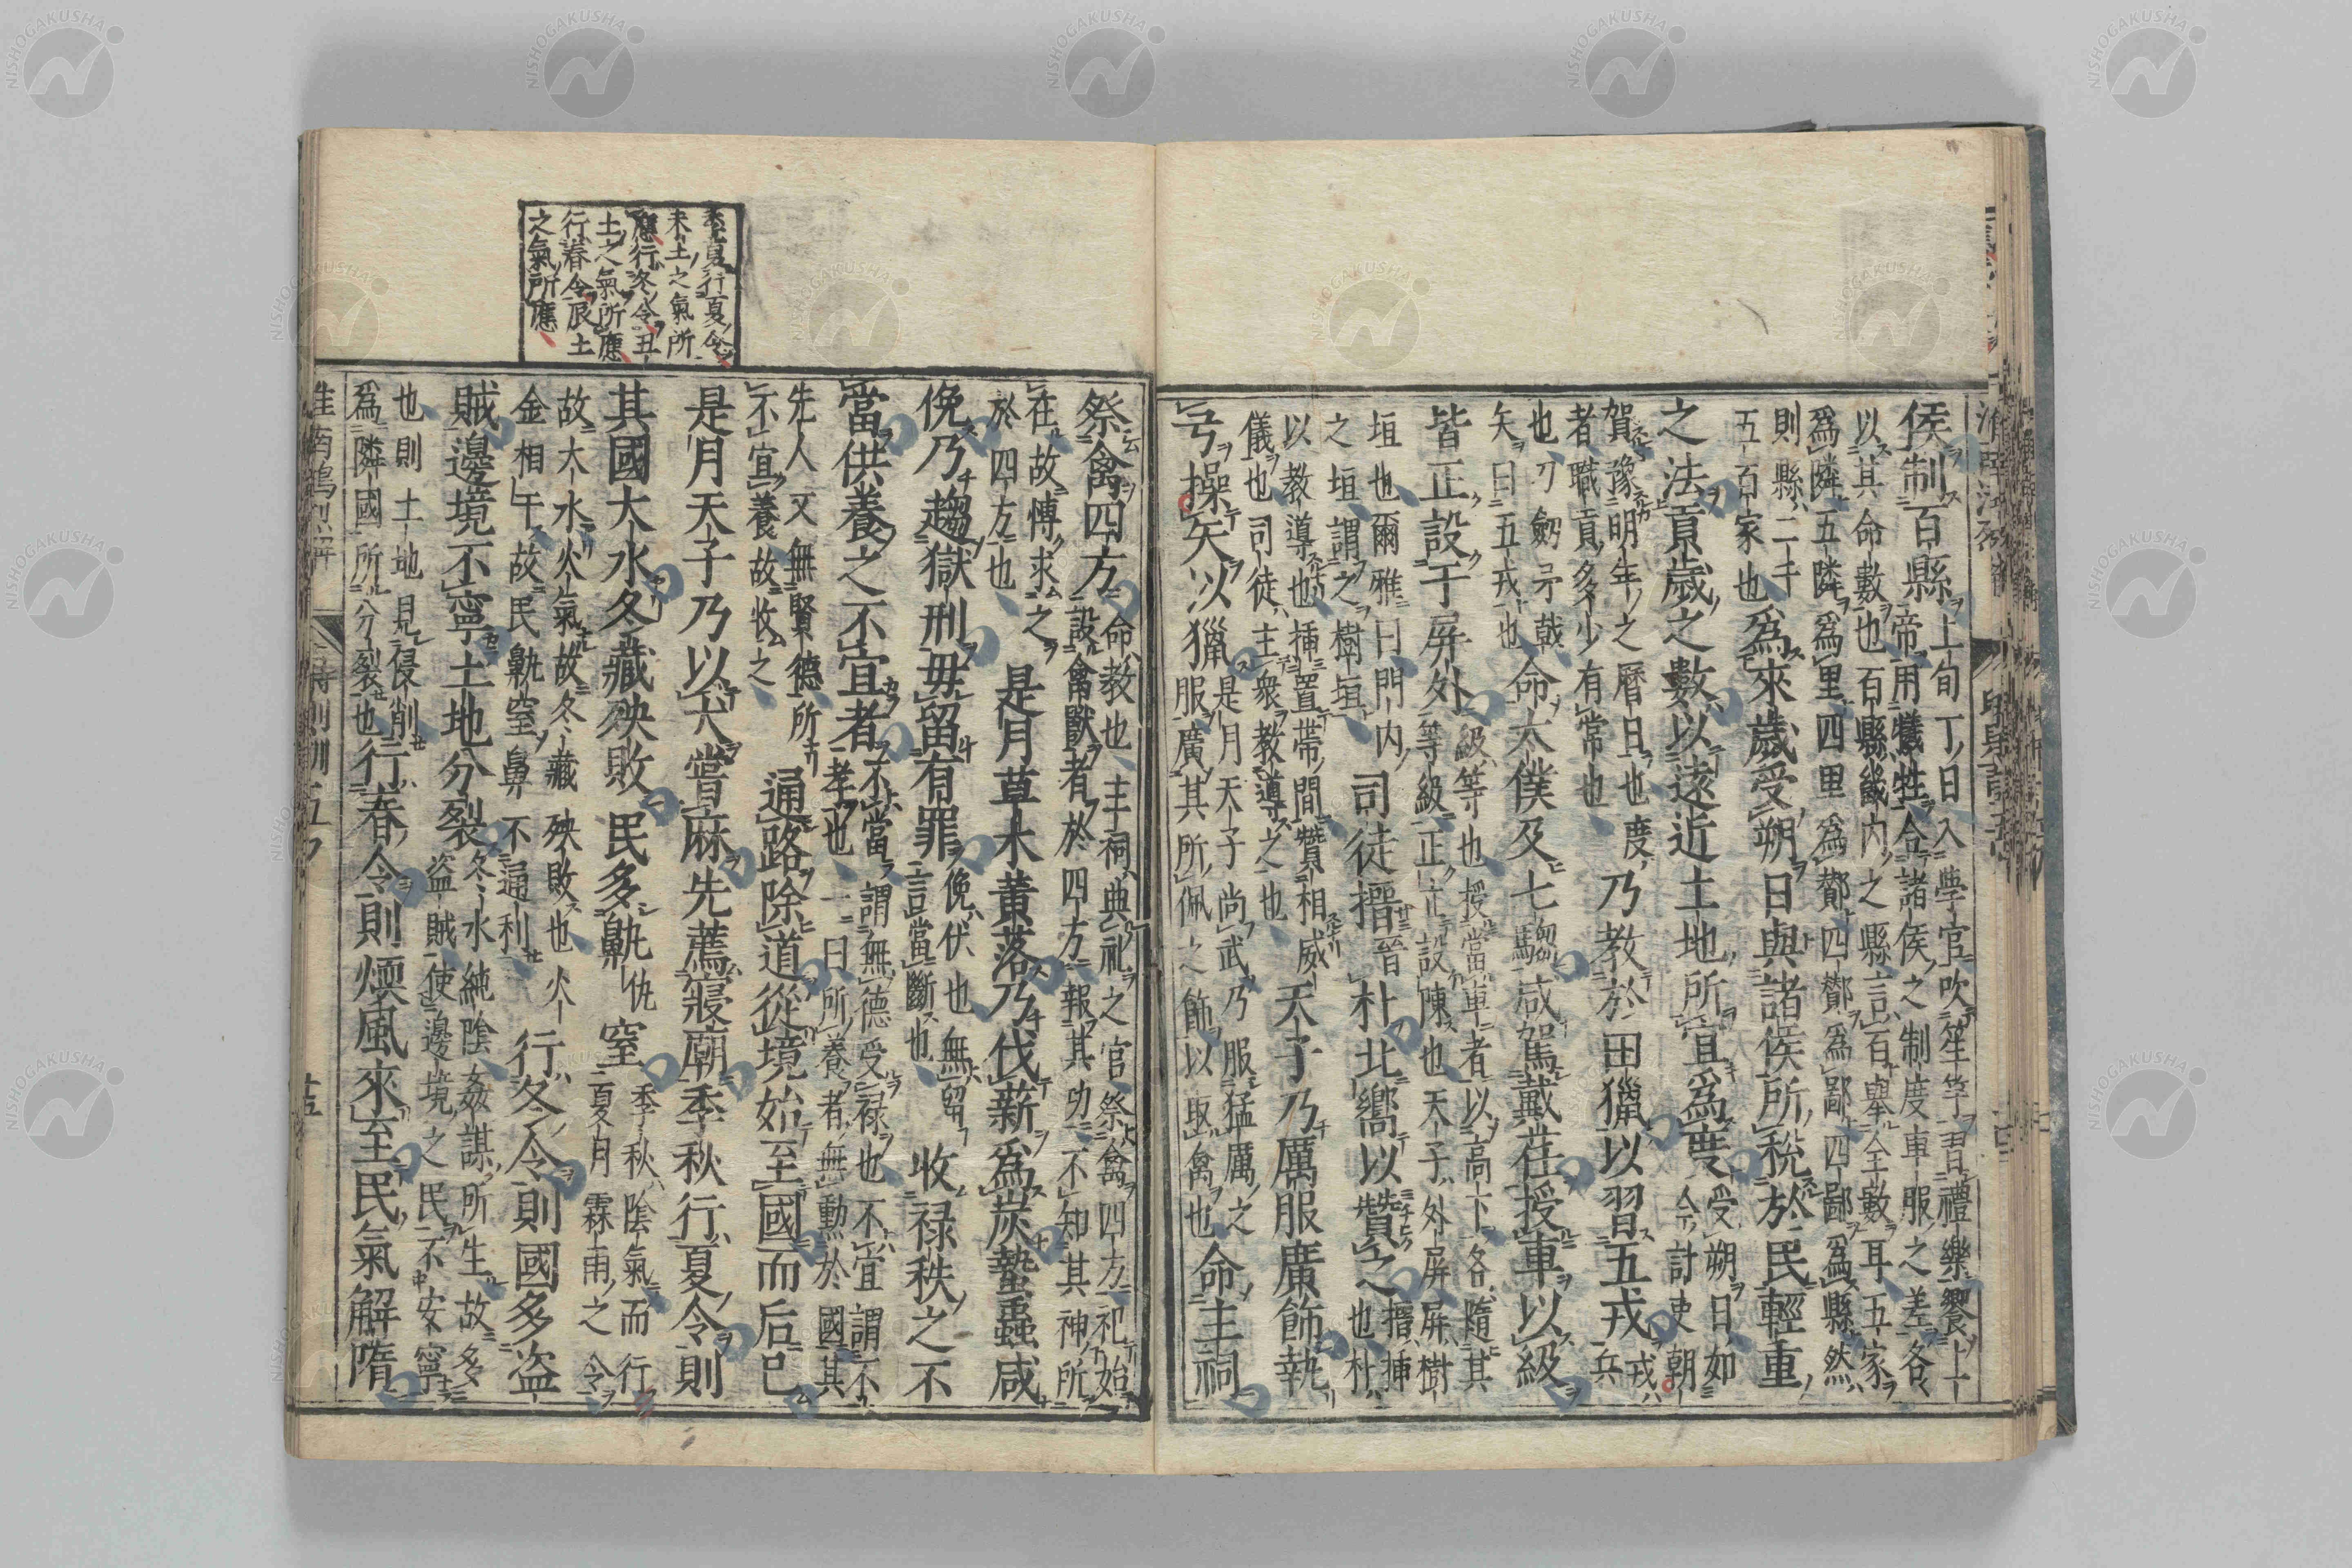 侯制百縣上旬丁日入學官吹笙竽習禮樂饗上
帝用犧牲合諸侯之制度車服之差各
以其命數也百縣畿內之縣言百舉全數耳五家
爲隣五隣爲里四里爲酇四酇爲鄙四鄙爲縣然
則縣二千
五百家也爲來歲受朔日與諸侯所稅於民輕重
之法貢歲之數以遠近土地所宜爲度受朔日如
今計吏朝
賀豫明年之曆日也度
者職貢多少有常也乃教於田獵以習五戎戎兵
也刀劒矛戟
矢曰五戎也命太僕及七騶咸駕戴荏授車以級
皆正設于屏外級等也授當車者以高下各隨其
等級正立設陳也天子外屏屏樹
垣也爾雅曰門內
之垣謂之樹垣司徒搢晉朴北嚮以贊之搢插
也朴
以教導也插置帶間贊相威
儀也司徒主衆教導之也天子乃厲服廣飾執
弓操矢以獵是月天子尚武乃服猛厲之
服廣其所佩之飾以取禽也命主祠
祭禽四方命教也主祠典祀之官祭禽四方祀始
設禽獸者於四方報其功不知其神所
在故博求之
於四方也是月草木黃落乃伐薪爲炭蟄蟲咸
俛乃趨獄刑毋留有罪俛伏也無留
言當斷也收祿秩之不
當供養之不宜者不當謂無德受祿也不宜謂不
孝也一曰所養者無勳於國其
先人又無賢德所
不宜養故收之通路除道從境始至國而后已
是月天子乃以犬嘗麻先薦寢廟季秋行夏令則
其國大水冬藏殃敗民多鼽仇窒季秋陰氣而行
夏月霖雨之令
故大水火氣故冬藏殃敗也火
金相干故民鼽窒鼻不通利行冬令則國多盗
賊邊境不寧土地分裂冬水純陰姦謀所生故多
盗賊使邊境之民不安寧
也則土地見侵削
爲隣國所分裂也行春令則煖風來至民氣解隋
季夏行夏令
未土之氣所
應行冬令丑
土之氣所應
行春令辰土
之氣所應
淮南鴻烈解
時則訓五
十五
NISHOGAKUSHA